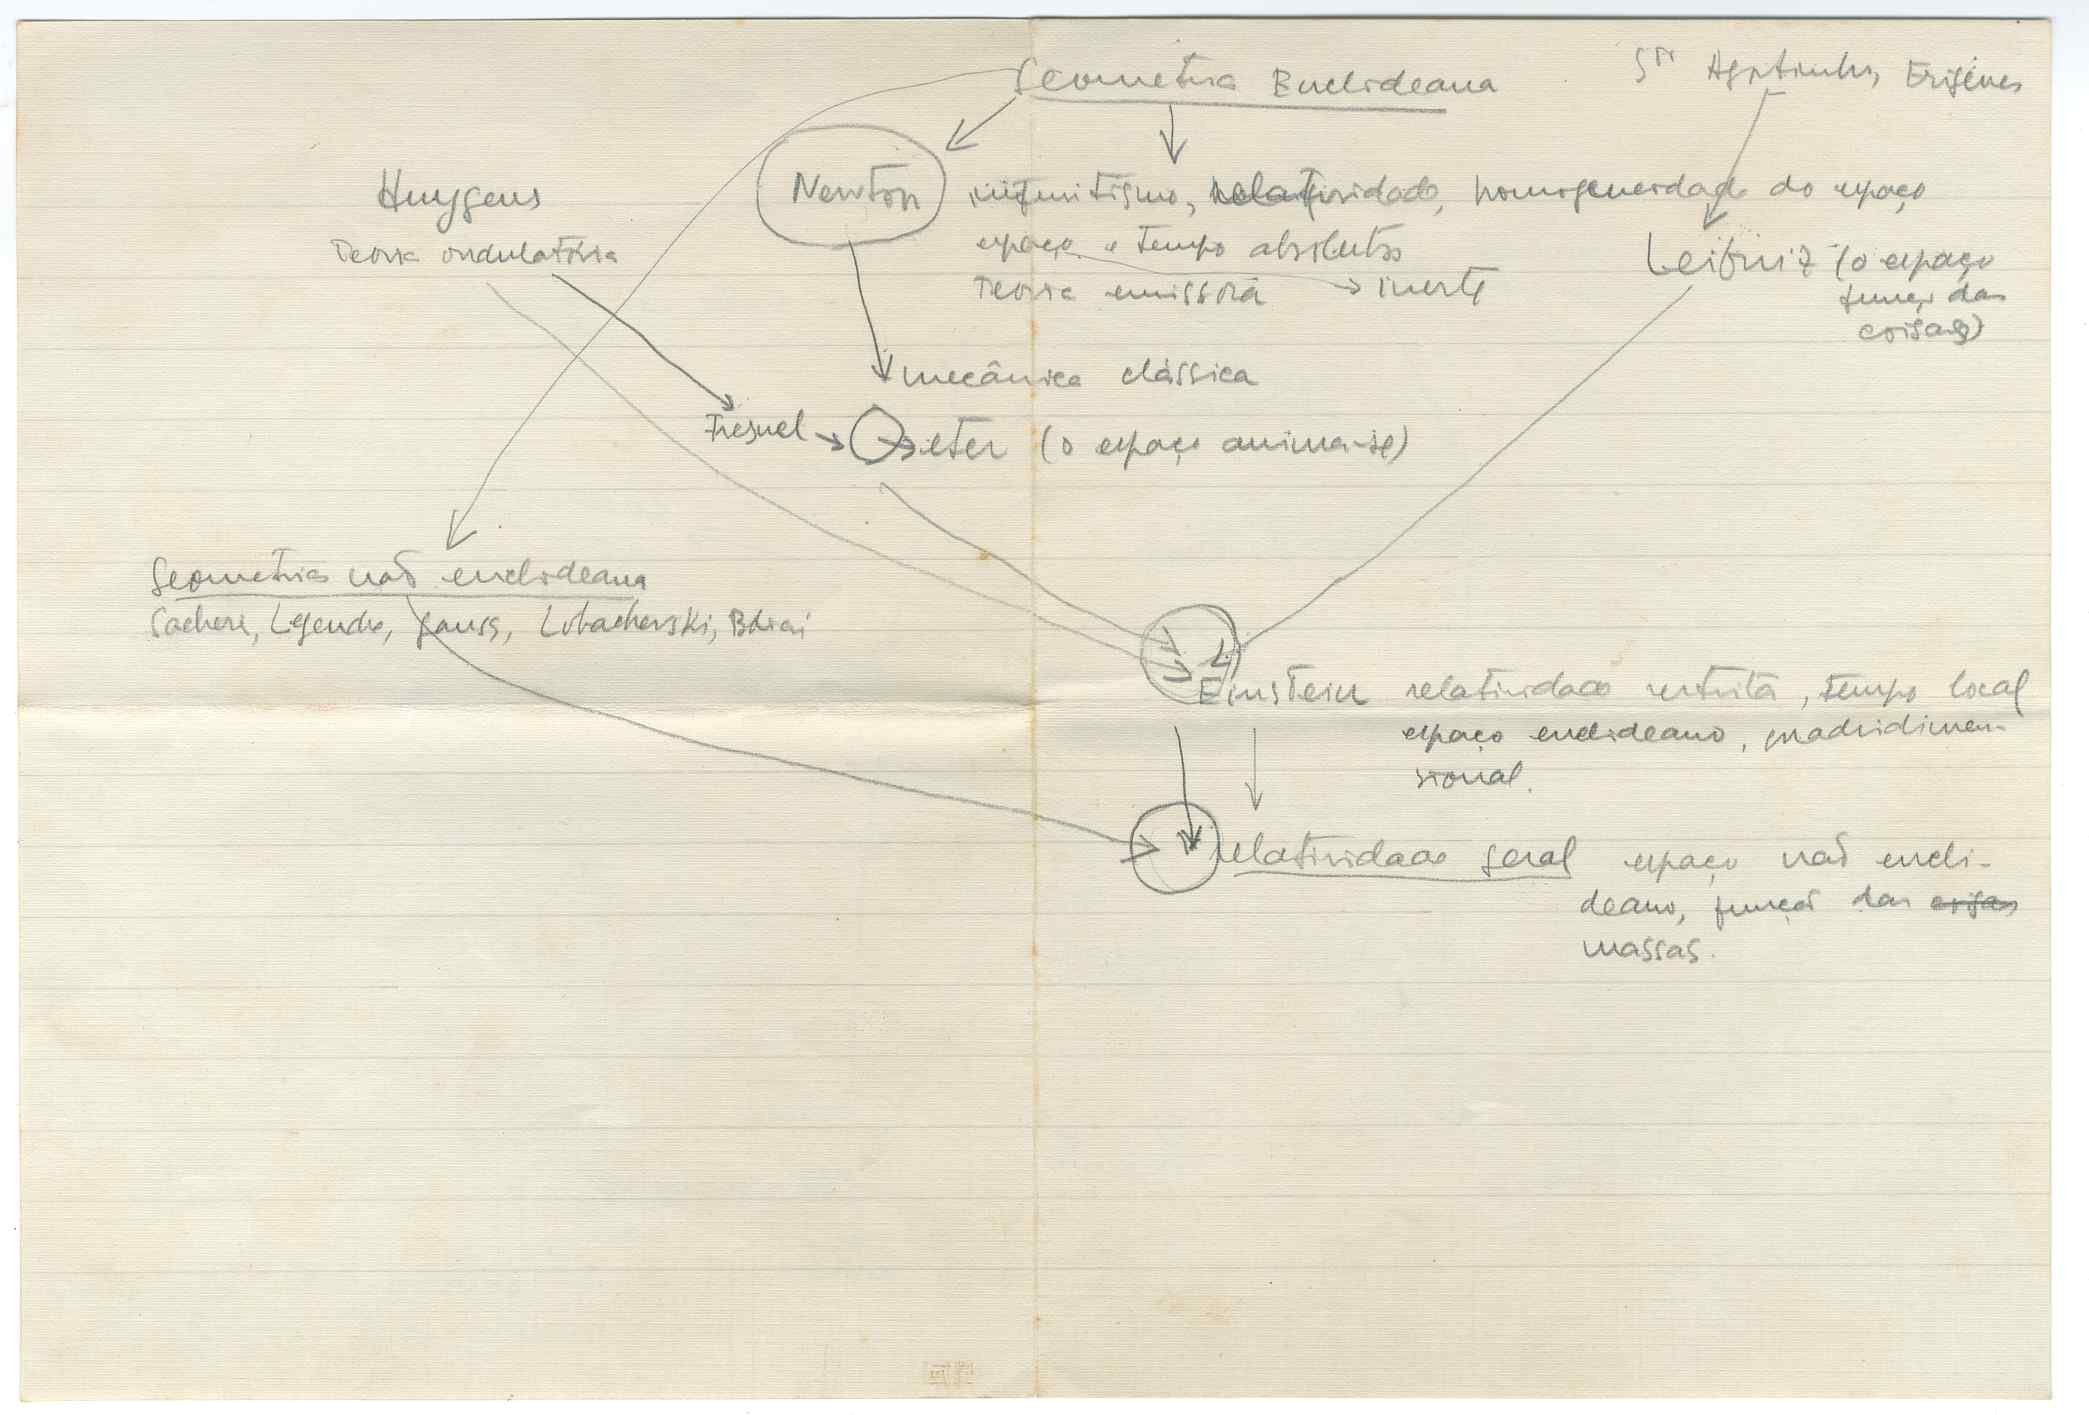 Geometria Euclideana
Sto Agostinho, Erígenes
Newton
infinitismo, relatividade, homogeneidade do espaço
espaço e tempo absolutos
teoria emissora → inerte
Huygens
Teoria ondulatória
Leibniz (o espaço
função das
coisas)
mecânica clássica
Fresnel → eter (o espaço anima-se)
Geometrias não euclideana
Sacheri, Legendre, Gauss, Lobachevski, Bolyai
Einstein relatividade restrita, tempo local
espaço euclideano, quadridimen-
sional.
relatividade geral espaço não eucli-
deano, função das coisas
massas.